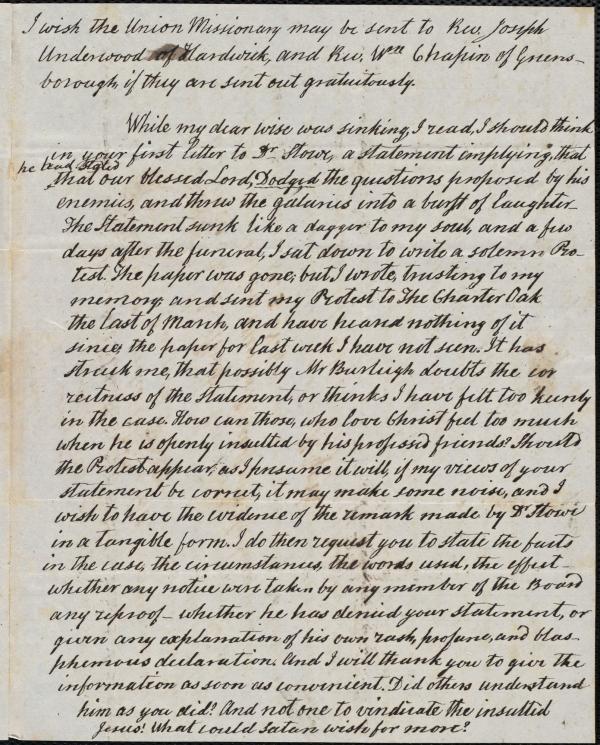 I wish the Union Missionary may be sent to Rev. Joseph
Underwood of Hardwick, and Rev. Wm Chapin of Greens-
borough, if they are sent out gratuitously.
While my dear wife was sinking, I read, I should think
in your first letter to Dr Stowe, a statement implying, that
he had stated
that our blessed Lord, Dodged the questions proposed by his
enemies, and threw the galaries into a burst of laughter
The Statement sunk like a dagger to my soul, and a few
days after the funeral, I sat down to write a solemn Pro-
test. The paper was gone, but I wrote, trusting to my
memory; and sent my Protest to The Charter Oak
the last of March, and have heard nothing of it
since; the paper for last week I have not seen. It has
struck me, that possibly Mr Burleigh doubts the cor
rectness of the statement, or thinks I have felt too keenly
in the case. How can those, who love Christ feel too much
when he is openly insulted by his professed friends? Should
the Protest appear, as I presume it will, if my views of your
statement be correct, it may make some noise, and I
wish to have the evidence of the remark made by Dr Stowe
in a tangible form. I do then request you to state the facts
in the case, the circumstances, the words used, the effect-
whether any notice were taken by any member of the Board
any reproof - whether he has denied your statement, or
given any explanation of his own rash, profane, and blas-
phemous declaration. And I will thank you to give the
information as soon as convenient. Did others understand
him as you did? And not one to vindicate the insulted
Jesus! What could Satan wish for more?